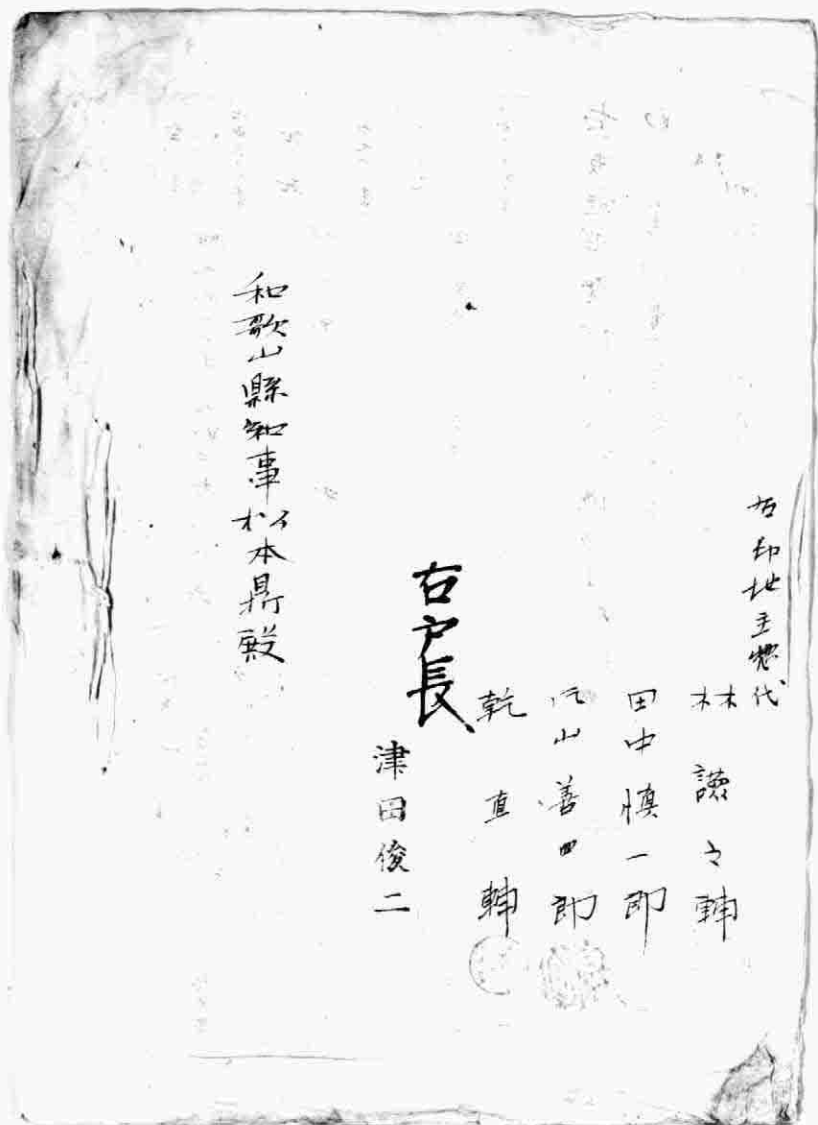 右 地主惣代
林 讃之輔
田中慎一郎
山善四郎
乾 直輔
右戸長
津田俊二
和歌山縣知事松本鼎殿